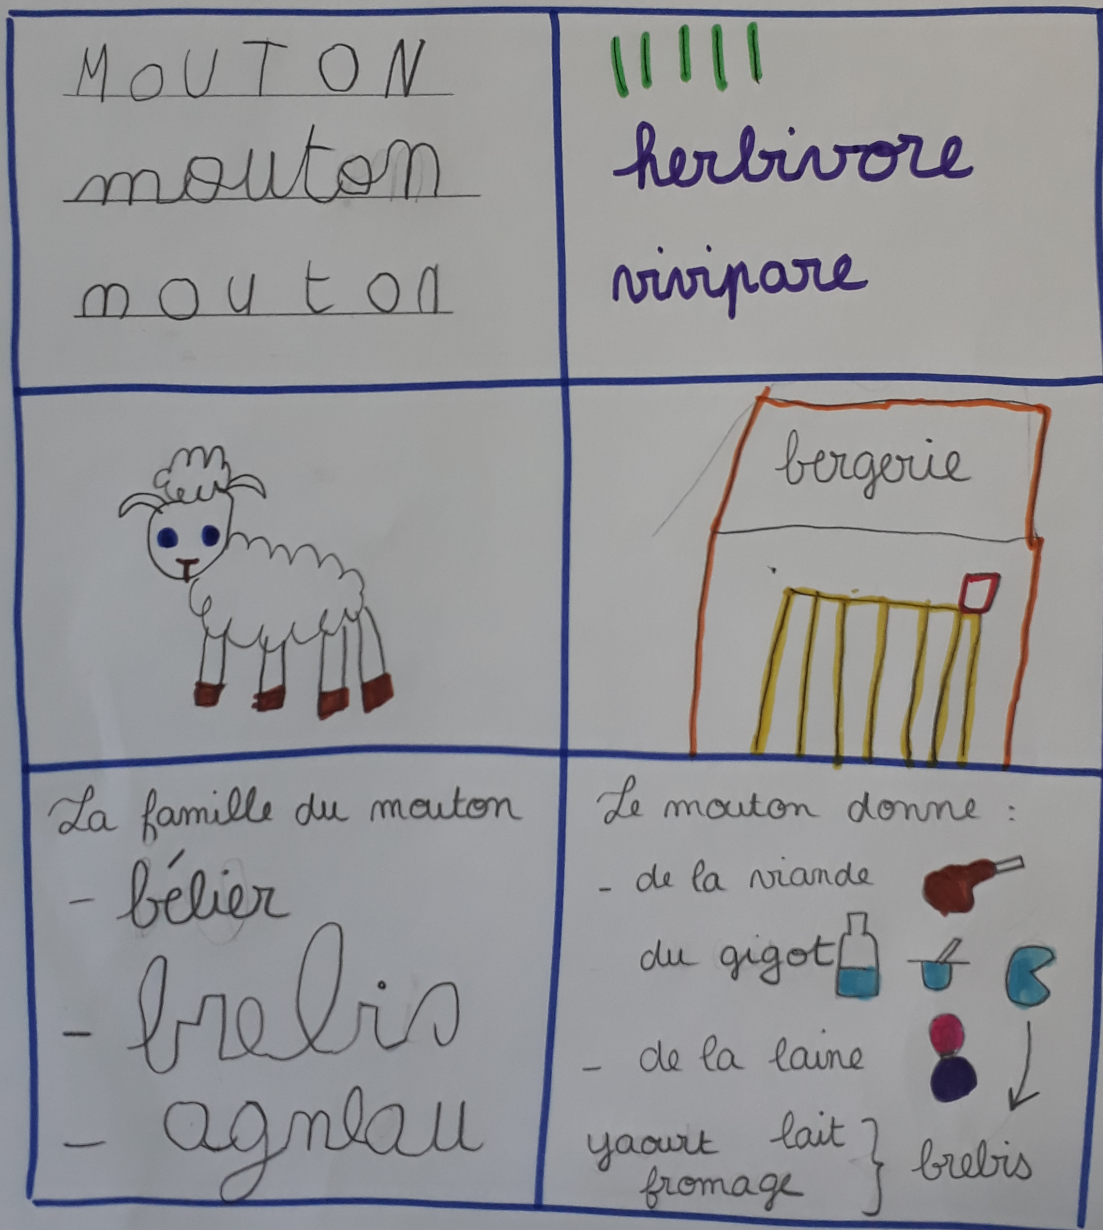 MOUTON
mouton
mouton
herbivore
vivipare
bergerie
La famille du mouton
- bélier
- brebis
- agneau
Le mouton donne :
- de la viande
du gigot
- de la laine
yaourt lait
fromage } brebis